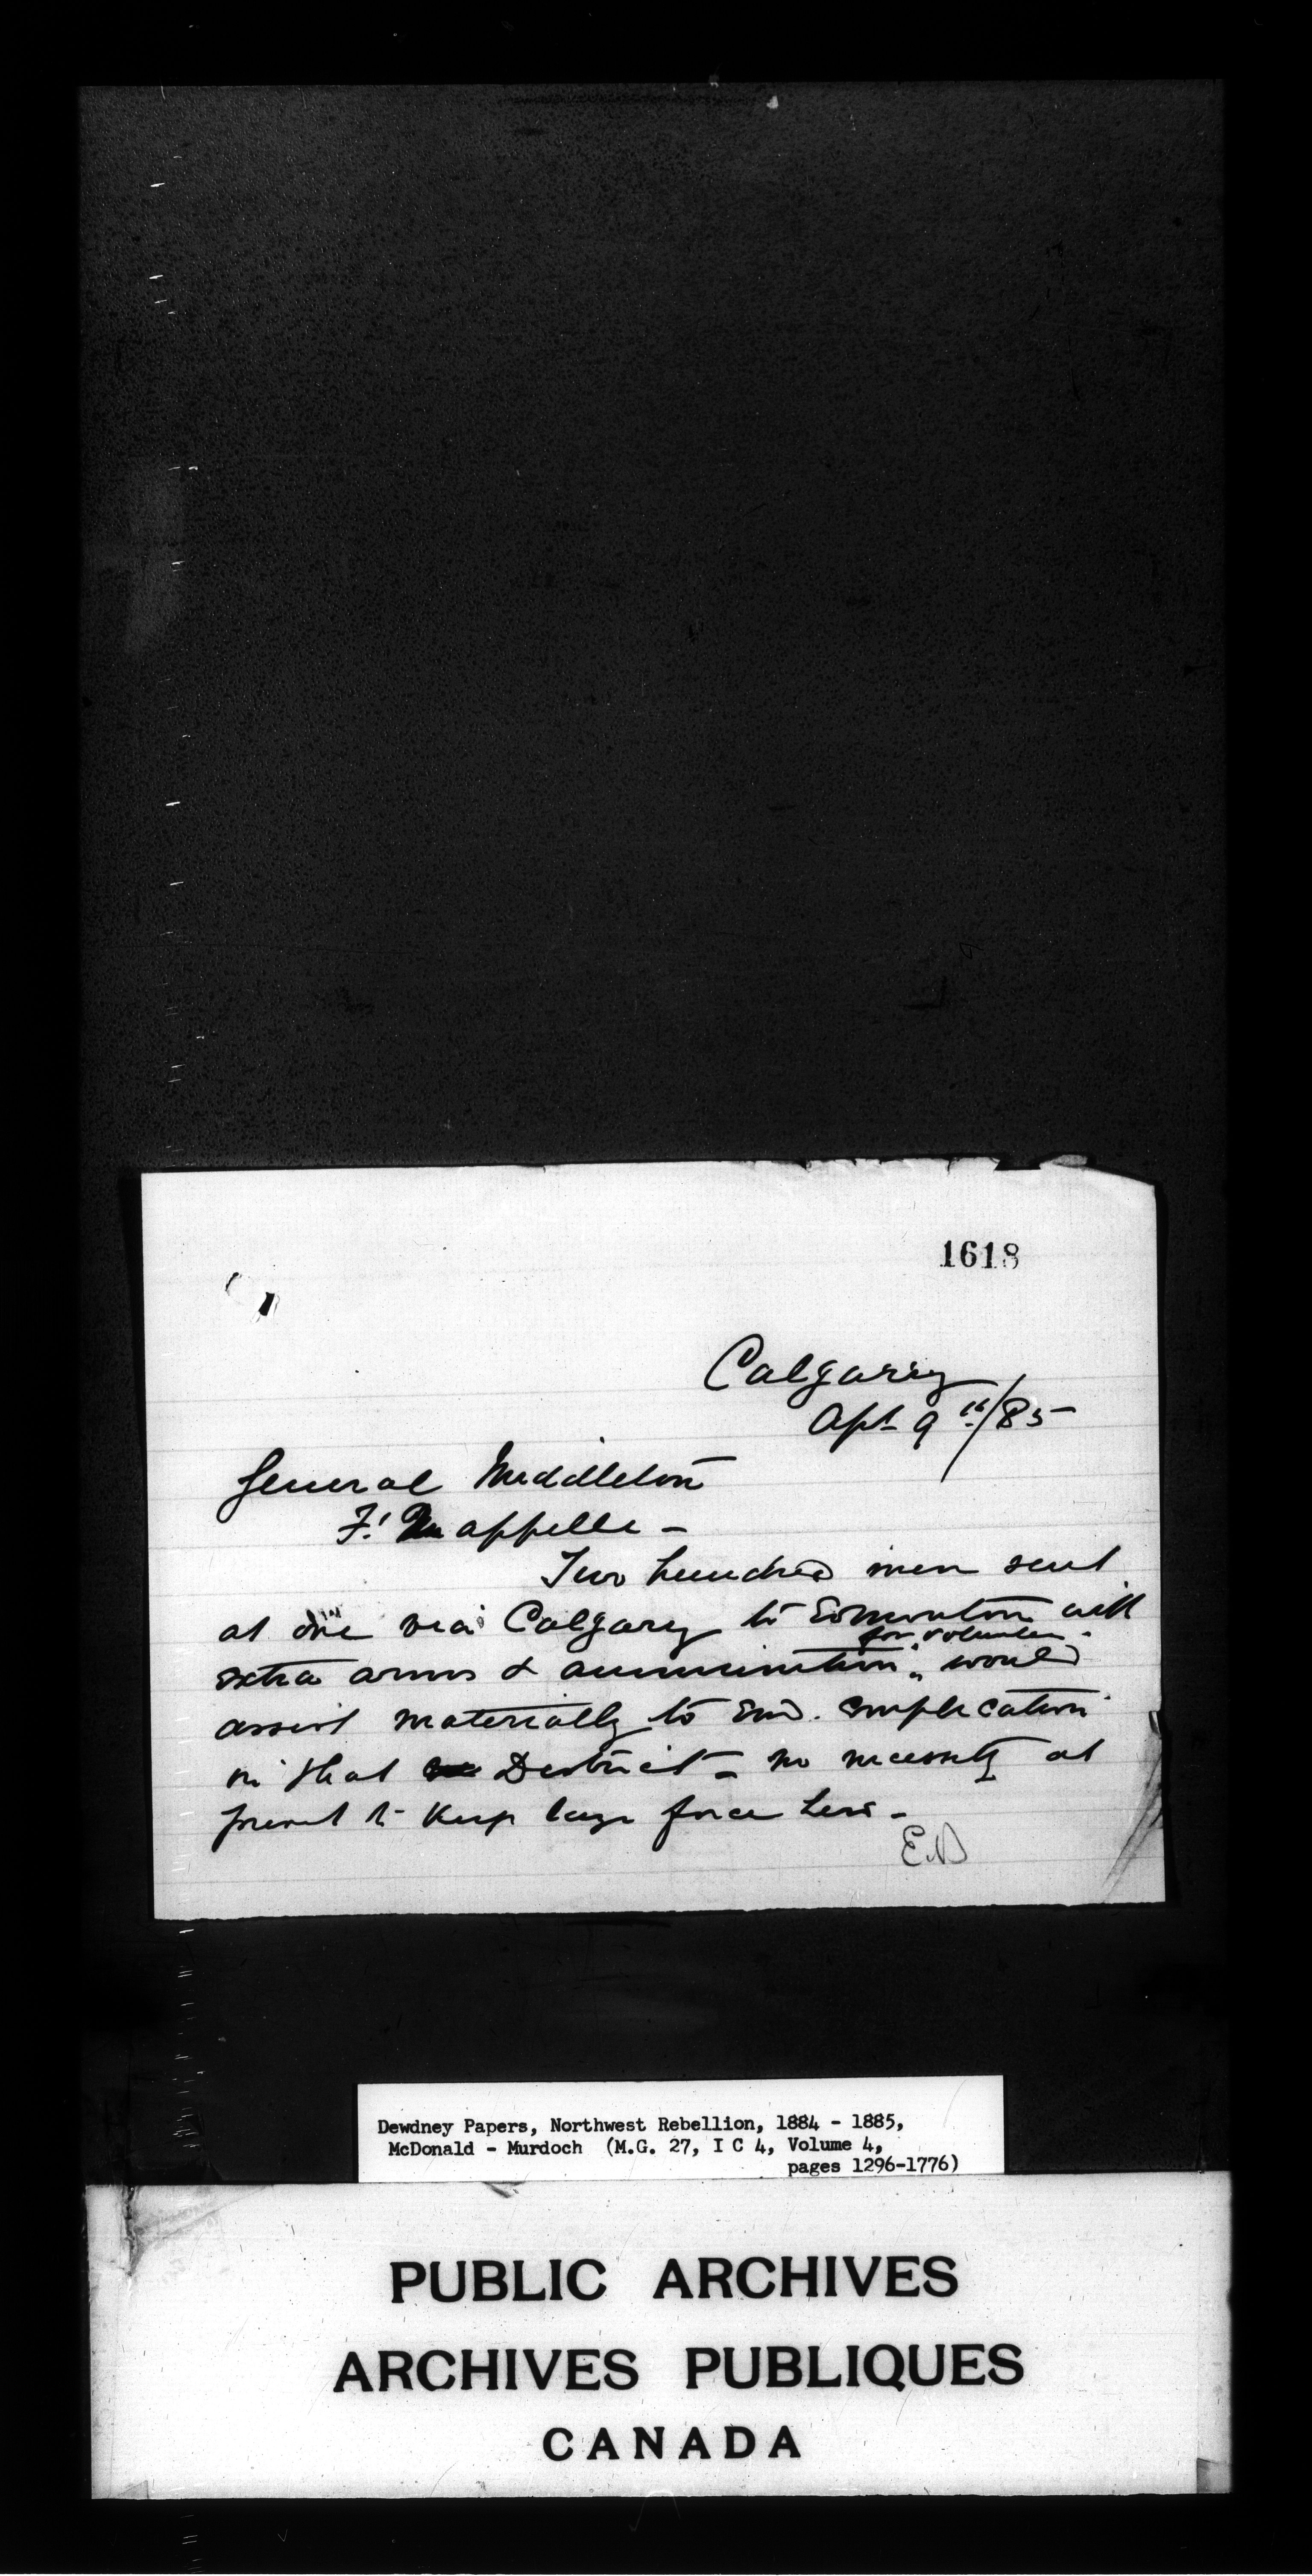 1618
Calgary
Apl 9th/85
General Middleton
Ft Qu appelle -
Two hundred men sent
at once via Calgary to Edmonton with
for volunteers
extra arms & ammunition would
assist materially to end complication
in that District - no necessity at
present to keep large force here -
E.D
Dewdney Papers, Northwest Rebellion, 1884 - 1885,
McDonald - Murdoch (M.G. 27, I C 4, Volume 4,
pages 1296-1776)
PUBLIC ARCHIVES
ARCHIVES PUBLIQUES
CANADA